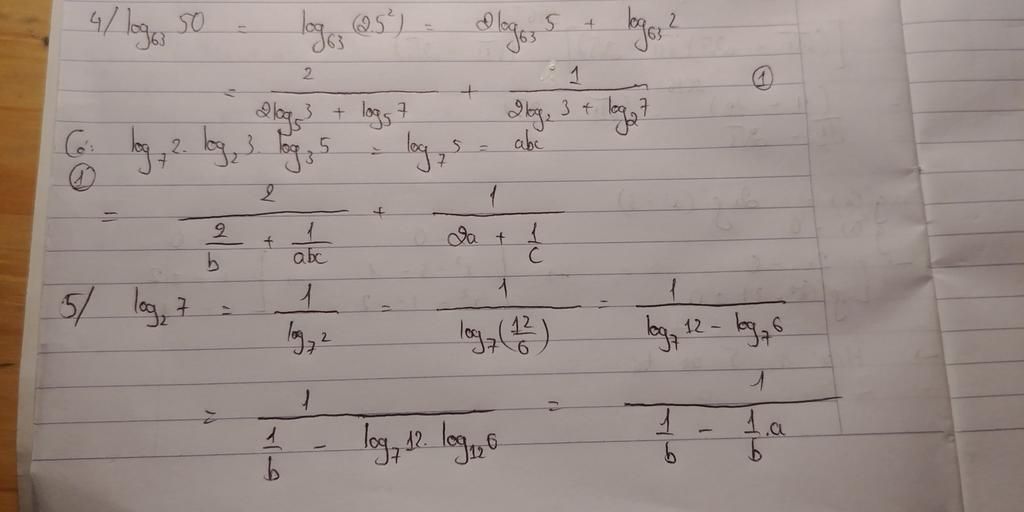 4/ log₆₃ 50 = log₆₃ (2 5²) = 2log₆₃ 5 + log₆₃ 2
= 2/(2log₅ 3 + log₅ 7) + 1/(2log₂ 3 + log₂ 7) ①
Có: log₇ 2 . log₂ 3 . log₃ 5 = log₇ 5 = abc
①
= 2/(2/b + 1/abc) + 1/(2a + 1/c)
5/ log₂ 7 = 1/(log₇ 2) = 1/(log₇ (12/6)) = 1/(log₇ 12 - log₇ 6)
= 1/(1/b - log₇ 12 . log₁₂ 6) = 1/(1/b - 1/b . a)